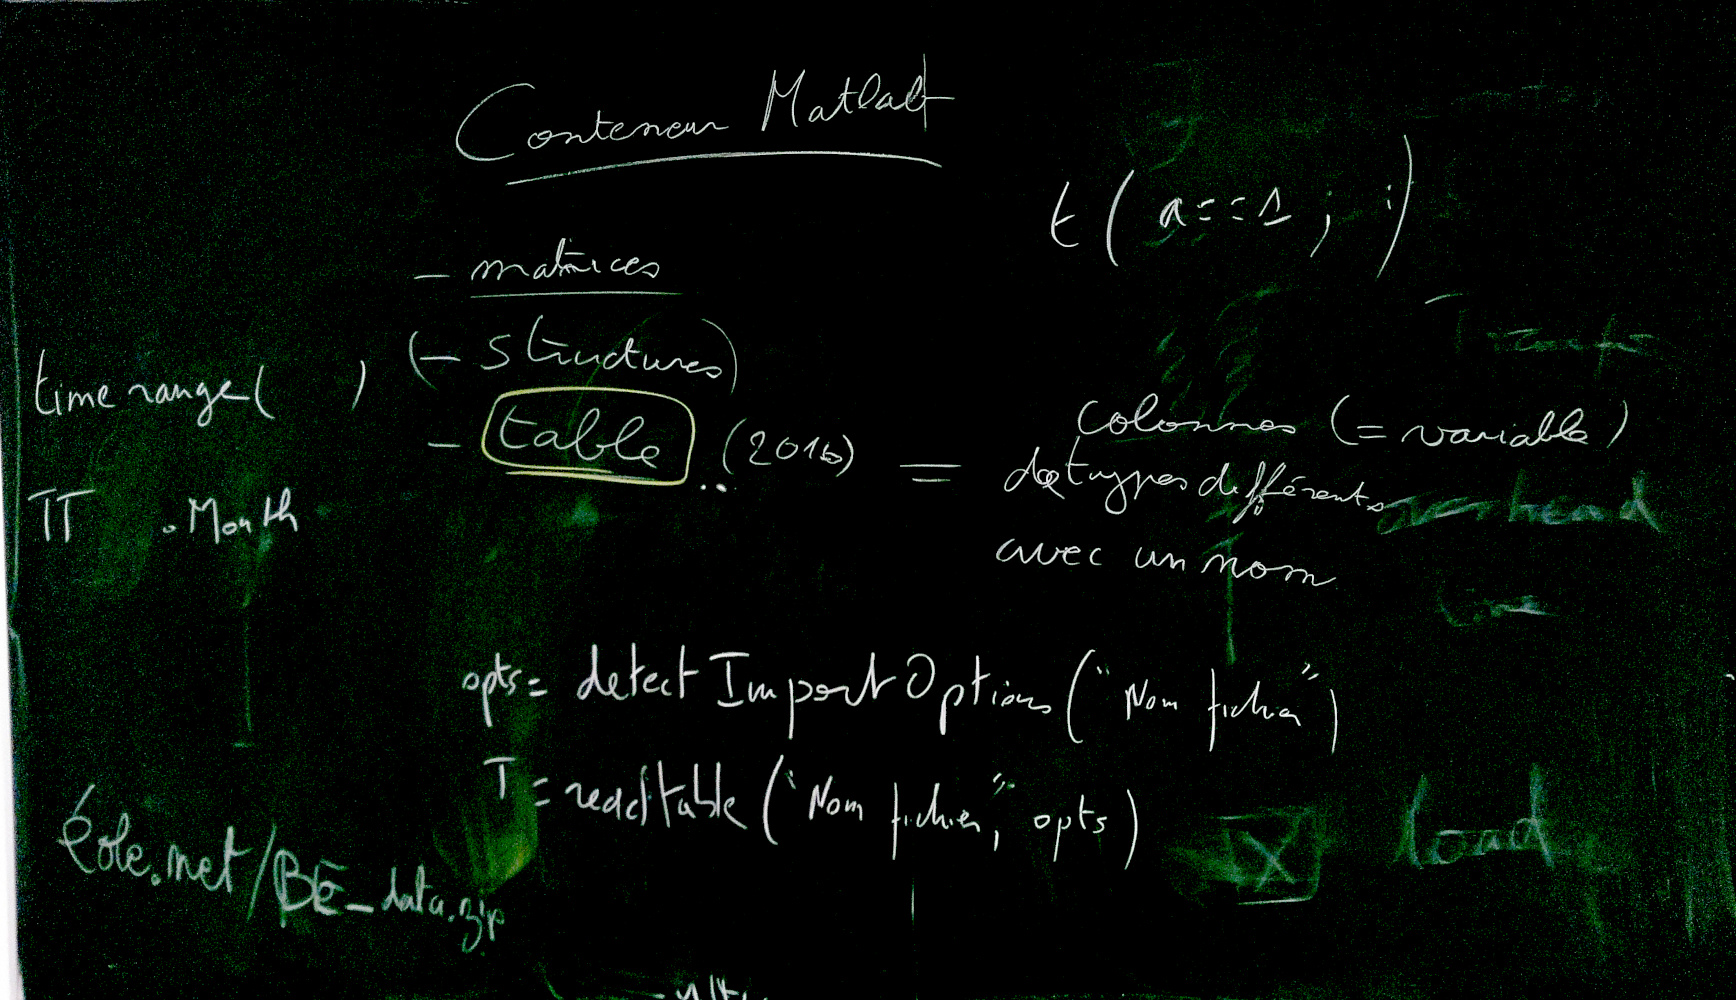 Conteneur Matlab
t(a==1 ; :)
- matrices
(- structures)
timerange( )
- table .. (2016) = colonnes (= variable)
de types différents
avec un nom
TT .Month
overhead
time
opts = detectImportOptions("Nom fichier")
T = readtable("Nom fichier", opts)
load
éole.net/BE_data.zip